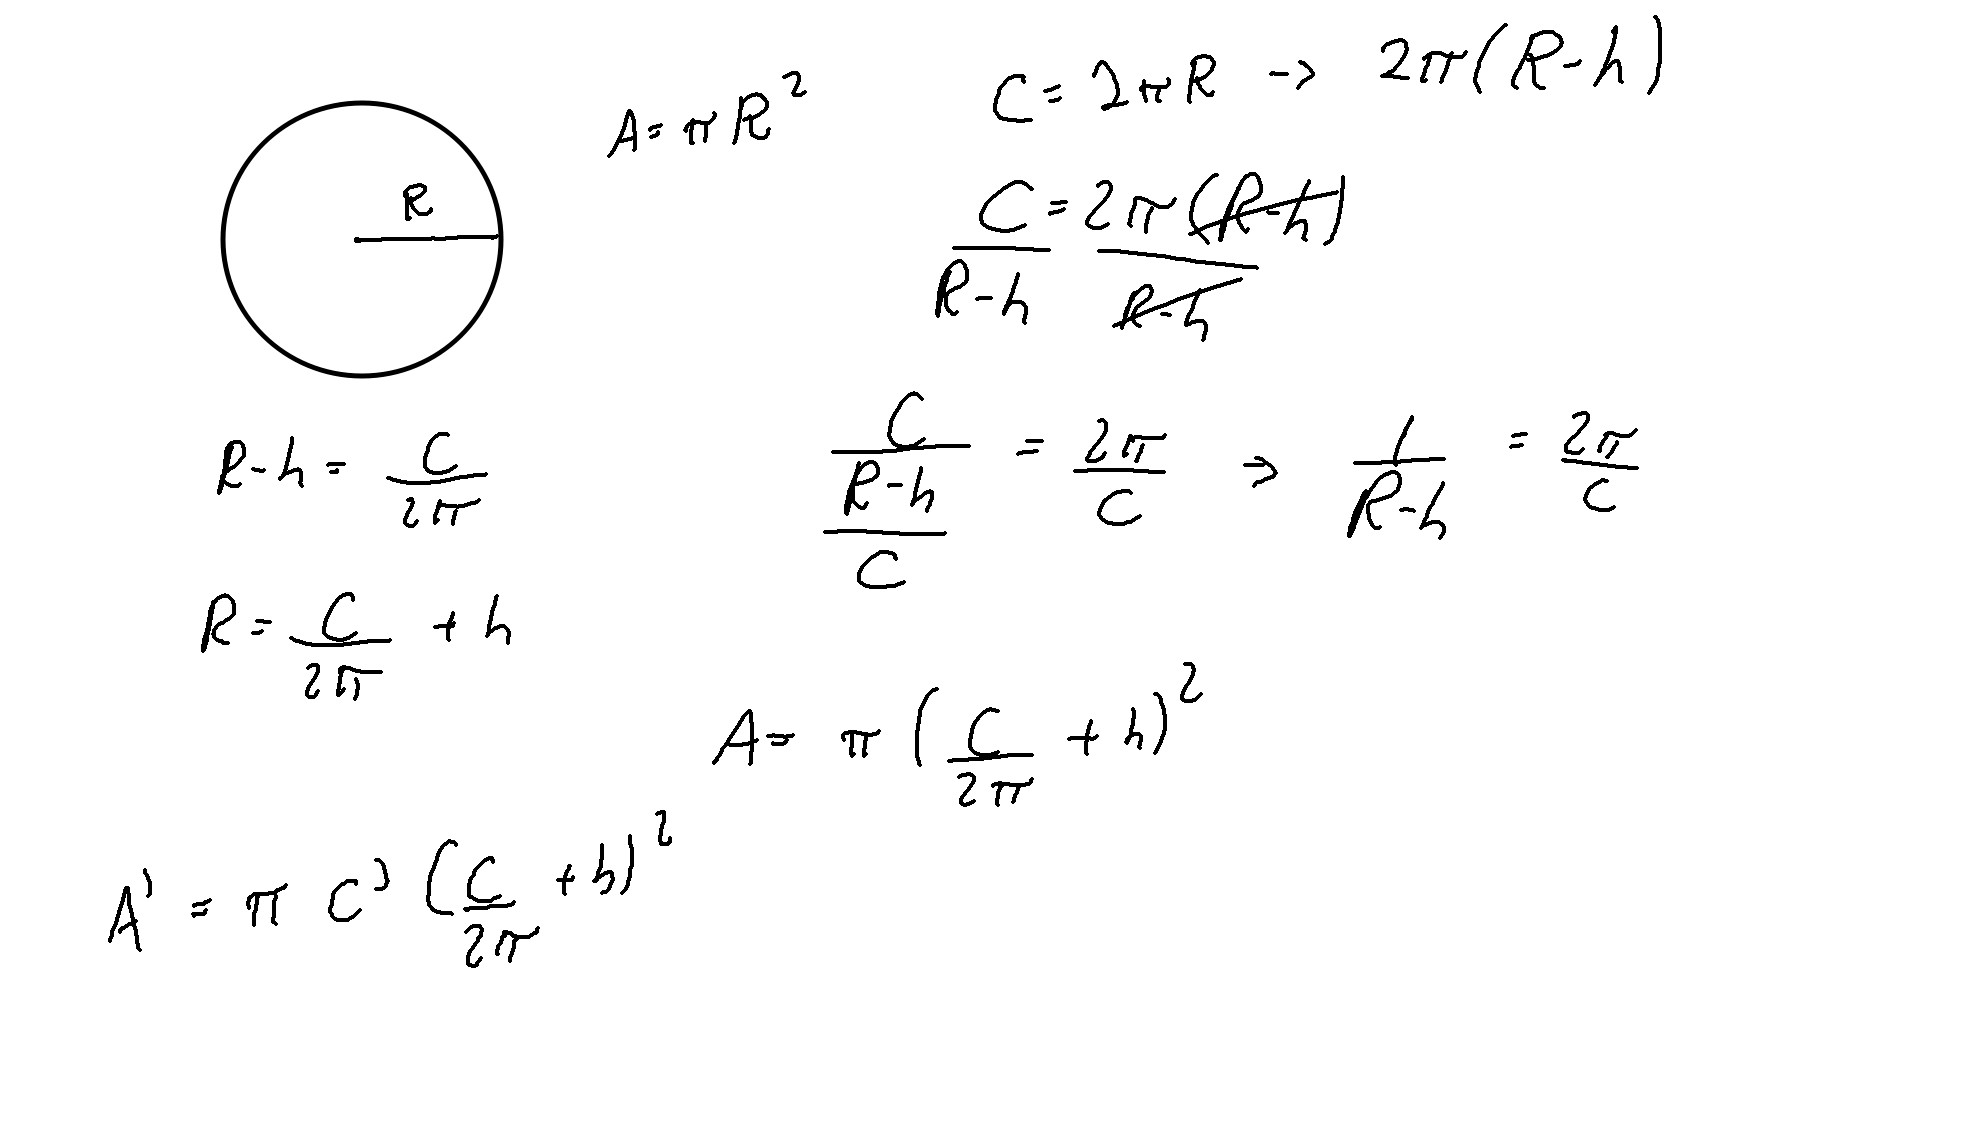 R
A = πR²
C = 2πR → 2π(R-h)
C/(R-h) = 2π(R-h)/(R-h)
R-h = C/2π
(C/(R-h))/C = 2π/C → 1/(R-h) = 2π/C
R = C/2π + h
A = π(C/2π + h)²
A' = π C' (C/2π + h)²